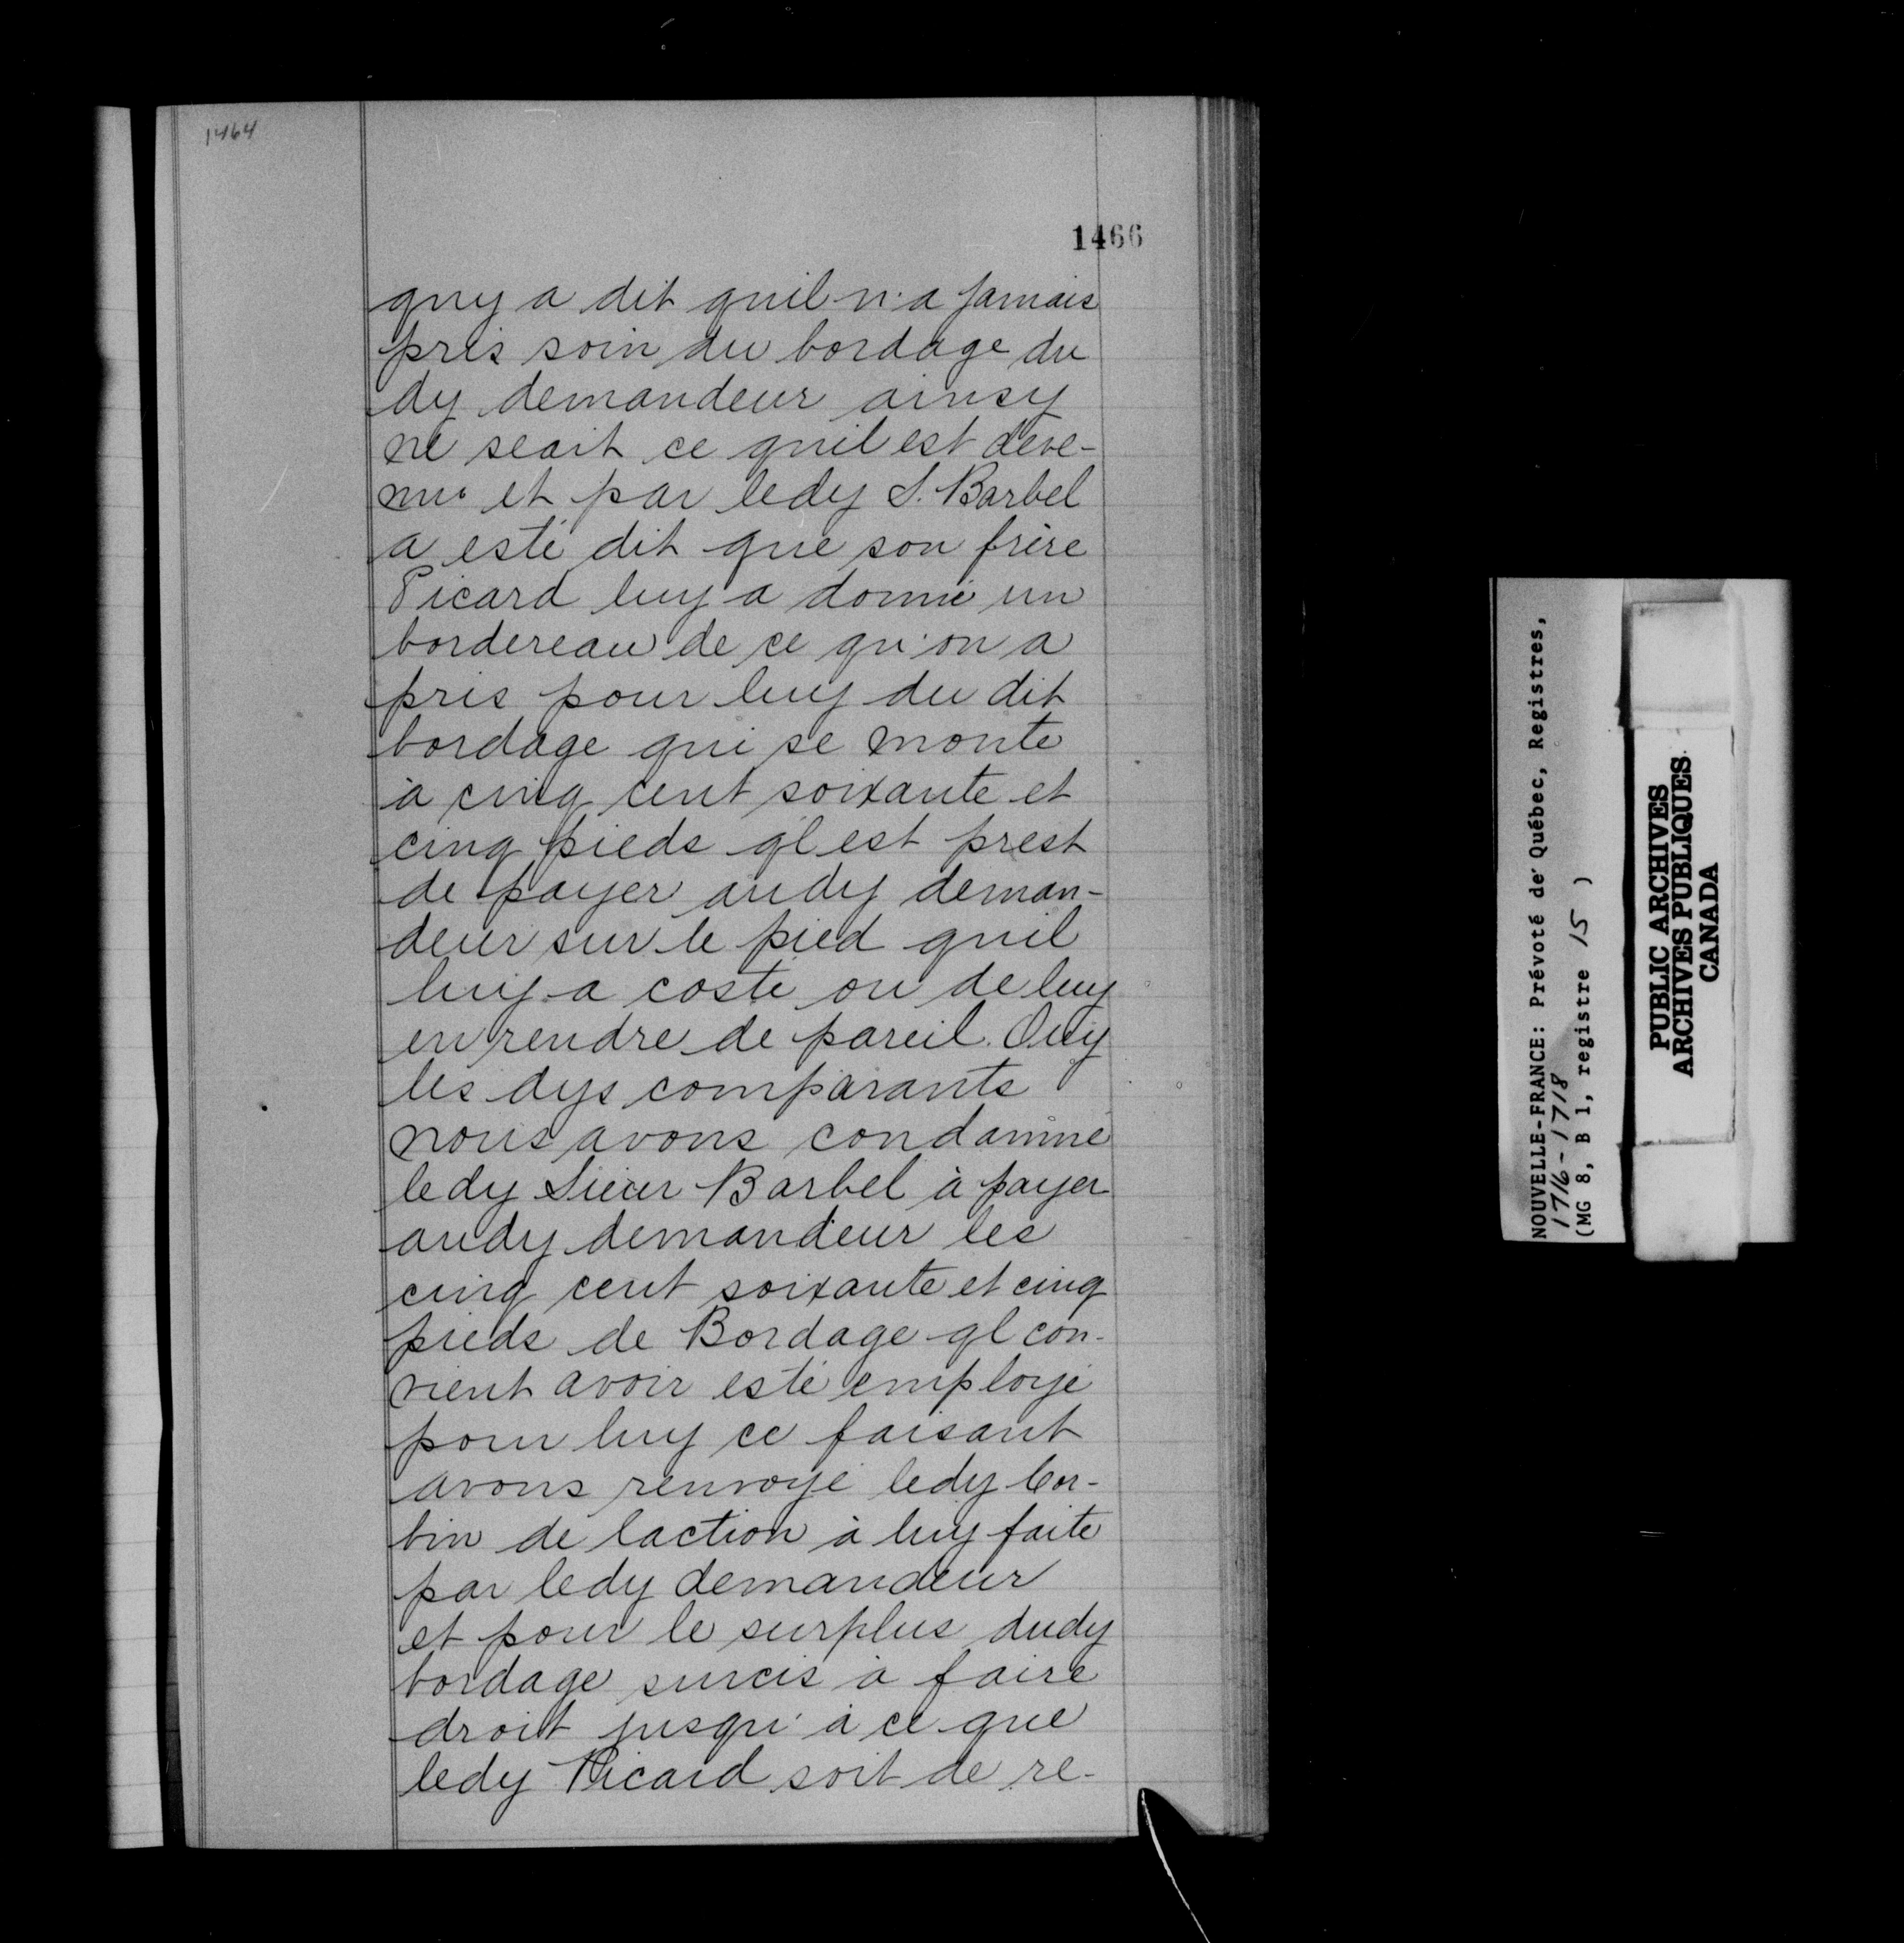 1464
1466
quy a dit quil n'a Jamais
pris soin du bordage du
dy demandeur ainsy
ne scait ce quil est deve-
nu et par ledy S. Barbel
a esté dit que son frère
Picard luy a donné un
bordereau de ce qu'on a
pris pour luy du dit
bordage qui se monte
à cinq cent soixante et
cinq pieds ql est prest
de payer audy deman-
deur sur le pied quil
luy a costé ou de luy
en rendre de pareil. Ouy
les dys comparants
nous avons condamné
ledy Sieur Barbel à payer
audy demandeur les
cinq cent soixante et cinq
pieds de Bordage ql con-
vient avoir esté employé
pour luy ce faisant
avons renvoyé ledy Cor-
bin de laction à luy faite
par ledy demandeur
et pour le surplus dudy
bordage surcis à faire
droit jusqu'à ce que
ledy Picard soit de re-
NOUVELLE-FRANCE: Prévoté de Québec, Registres,
1716-1718
(MG 8, B 1, registre 15 )
PUBLIC ARCHIVES
ARCHIVES PUBLIQUES
CANADA